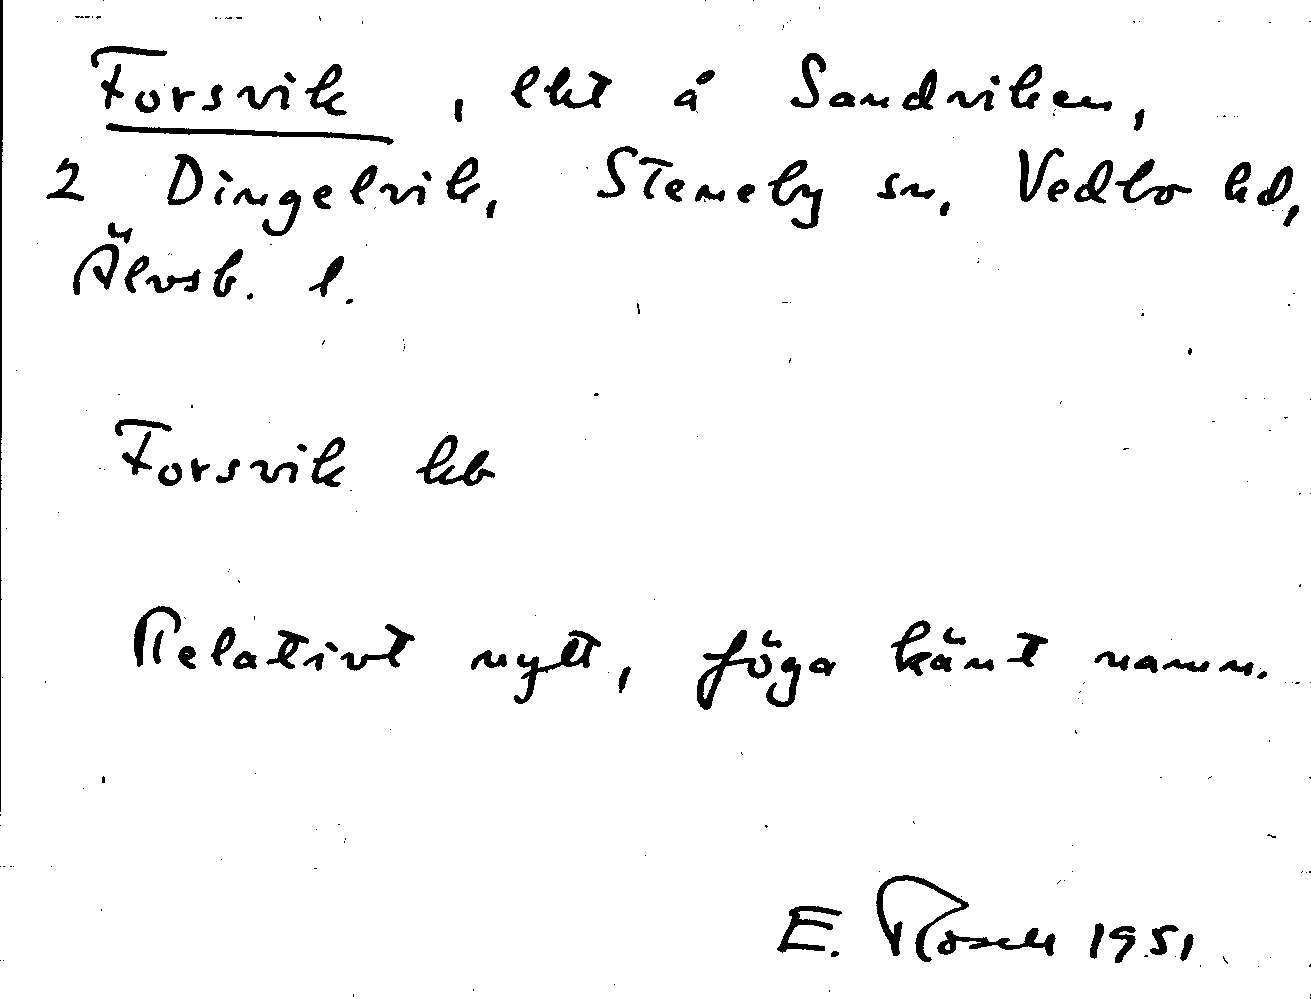 Forsvik, lht å Sandviken,
2 Dingelvik, Steneby sn, Vedbo hd,
Älvsb. l.
Forsvik kb
Relativt nytt, föga känt namn.
E. Rosell 1951